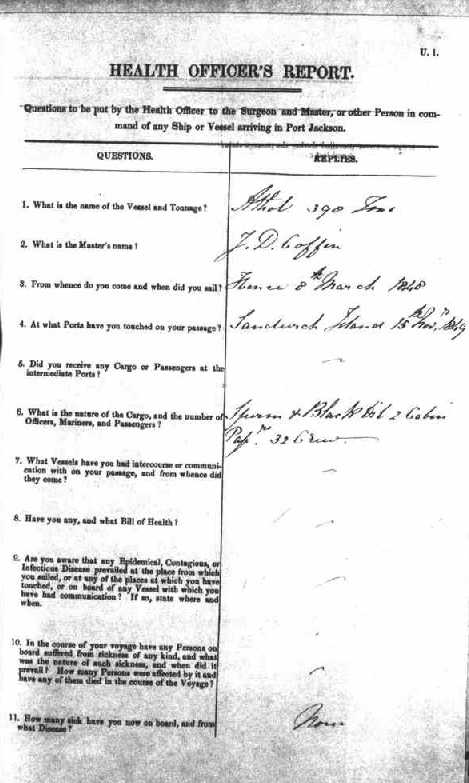 U. 1.
HEALTH OFFICER'S REPORT.
Questions to be put by the Health Officer to the Surgeon and Master, or other Person in com-
mand of any Ship or Vessel arriving in Port Jackson.
QUESTIONS.
REPLIES.
1. What is the name of the Vessel and Tonnage?
Athol 390 Tons
2. What is the Master's name?
J. D. Coffin
3. From whence do you come and when did you sail?
Hence 8th March 1848
4. At what Ports have you touched on your passage?
Sandwich Island 15th Novr. 1849
5. Did you receive any Cargo or Passengers at the
intermediate Ports?
6. What is the nature of the Cargo, and the number of
Officers, Mariners, and Passengers?
Sperm & Black Oil 2 Cabin
Passr. 32 Crew
7. What Vessels have you had intercourse or communi-
cation with on your passage, and from whence did
they come?
8. Have you any, and what Bill of Health?
9. Are you aware that any Epidemical, Contagious, or
Infectious Disease prevailed at the place from which
you sailed, or at any of the places at which you have
touched, or on board of any Vessel with which you
have had communication? If so, state where and
when.
10. In the course of your voyage have any Persons on
board suffered from sickness of any kind, and what
was the nature of such sickness, and when did it
prevail? How many Persons were affected by it and
have any of them died in the course of the Voyage?
11. How many sick have you now on board, and from
what Disease?
None